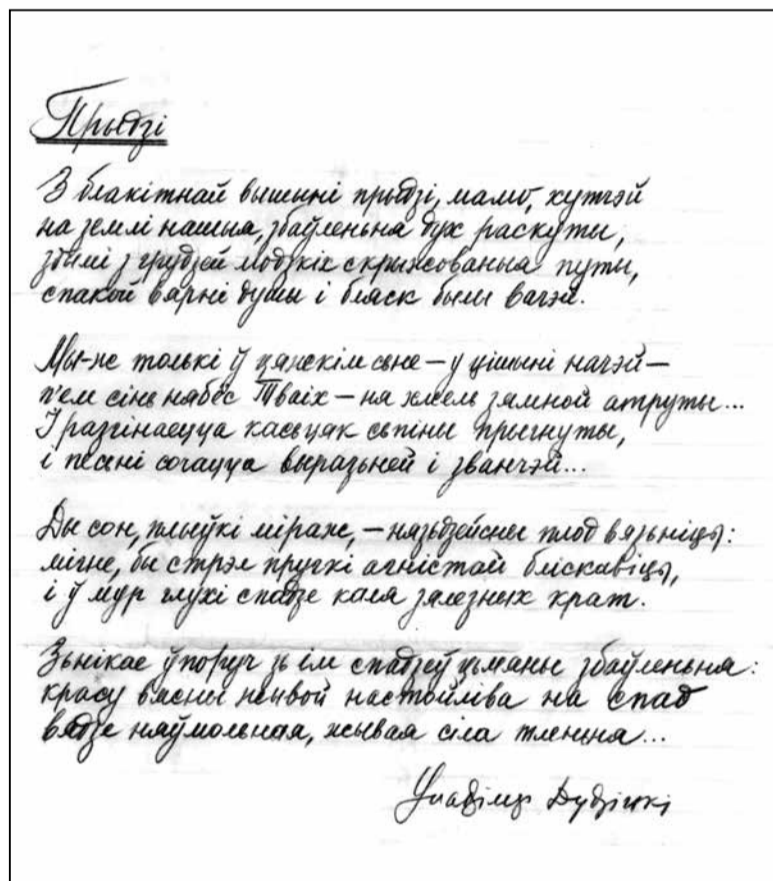 Прыйдзі
З блакітнай вышыні прыйдзі, мамо, хутчэй
на землі нашыя, збаўленьня дух раскуты,
здымі з грудзей людзкіх скрыжованыя путы,
спакой вярні душы і бляск былы вачэй.
Мы-ж толькі ў цяжкім сьне — у цішыні начэй —
п'ем сінь нябёс Тваіх — ня хмель зямной атруты...
І разгінаецца касьцяк сьпіны прыгнуты,
і песні сочацца выразьней і званчэй...
Ды сон, плыўкі міраж, — нязьдзейсны плод вязьніцы:
мігне, бы стрэл пругкі агністай бліскавіцы,
і ў мур глухі спадзе каля зялезных крат.
Зьнікае ўпоруч зь ім спадзеў цьмяны збаўленьня:
красу вясны жывой настойліва на спад
вядзе няўмольная, жывая сіла тленьня...
Уладзімер Дудзіцкі